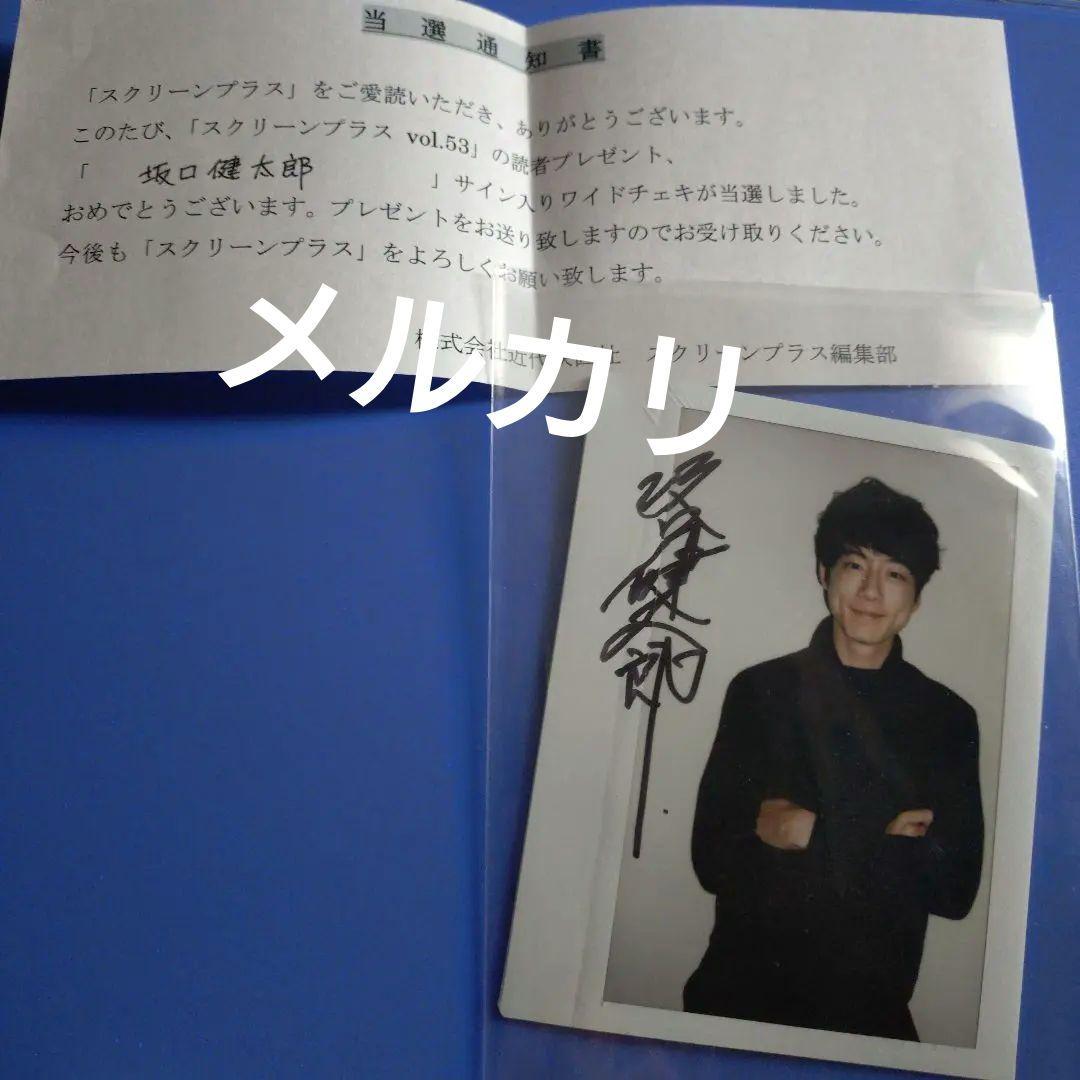 当選通知書
「スクリーンプラス」をご愛読いただき、ありがとうございます。
このたび、「スクリーンプラス vol.53」の読者プレゼント、
「 坂口健太郎 」サイン入りワイドチェキが当選しました。
おめでとうございます。プレゼントをお送り致しますのでお受け取りください。
今後も「スクリーンプラス」をよろしくお願い致します。
株式会社近代 社 スクリーンプラス編集部
メルカリ
坂口健太郎